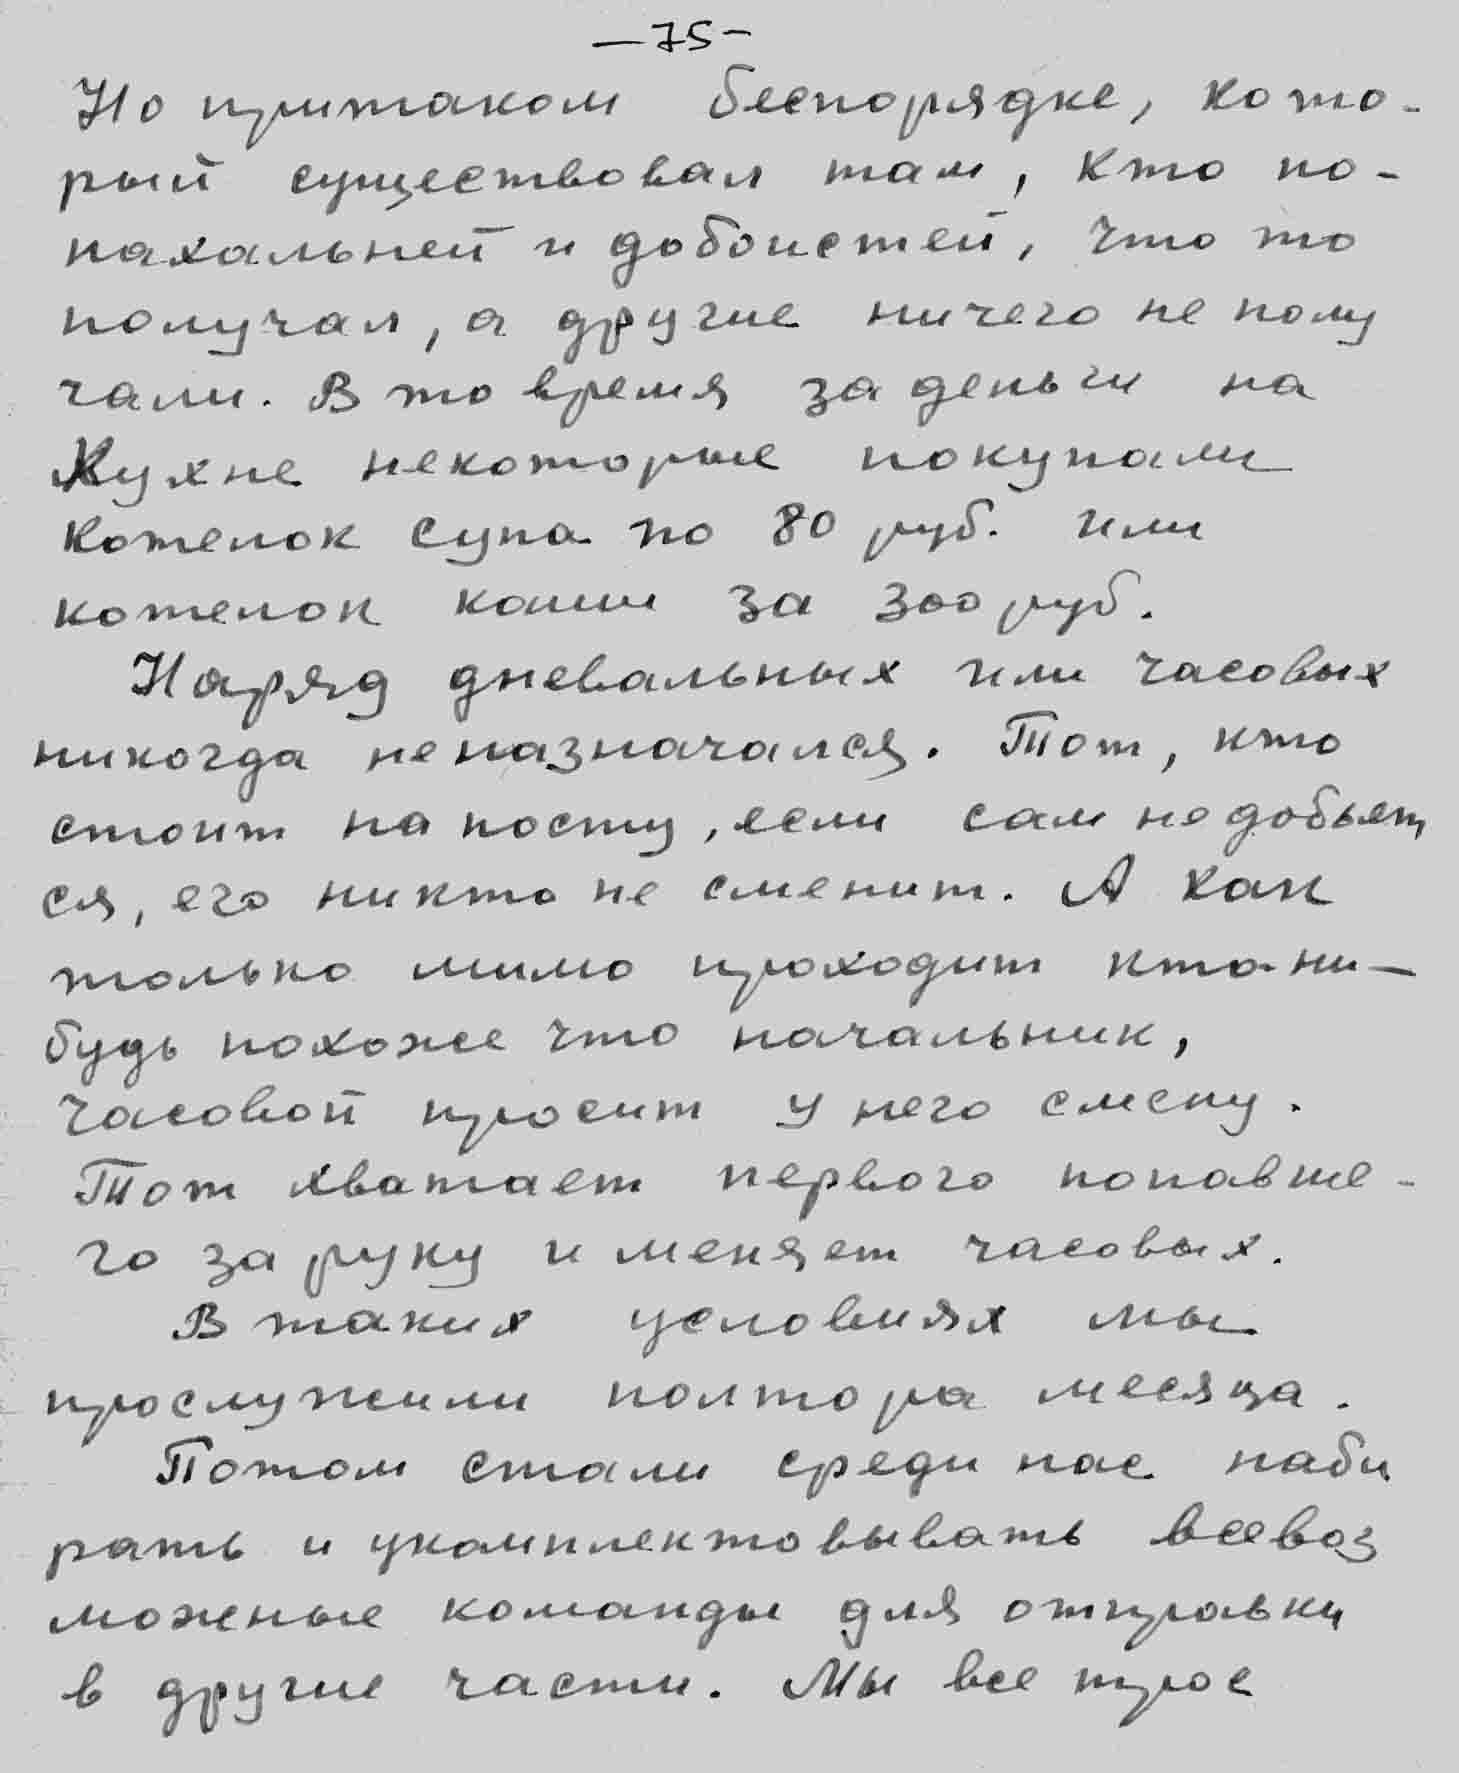 —75-
Но притаком беспорядке, кото-
рый существовал там, кто по-
нахальней и добоистей, что то
получал, а другие ничего не полу
чали. В то время за деньги на
Кухне некоторые покупали
котелок супа по 80 руб. или
котелок каши за 300 руб.
Наряд дневальных или часовых
никогда неназначался. Тот, кто
стоит на посту, если сам не добьет
ся, его никто не сменит. А как
только мимо проходит кто-ни-
будь похоже что начальник,
часовой просит у него смену.
Тот хватает первого попавше-
го за руку и меняет часовых.
В таких условиях мы
прослужили полтора месяца.
Потом стали среди нас наби
рать и укомплектовывать всевоз
можные команды для отправки
в другие части. Мы все трое